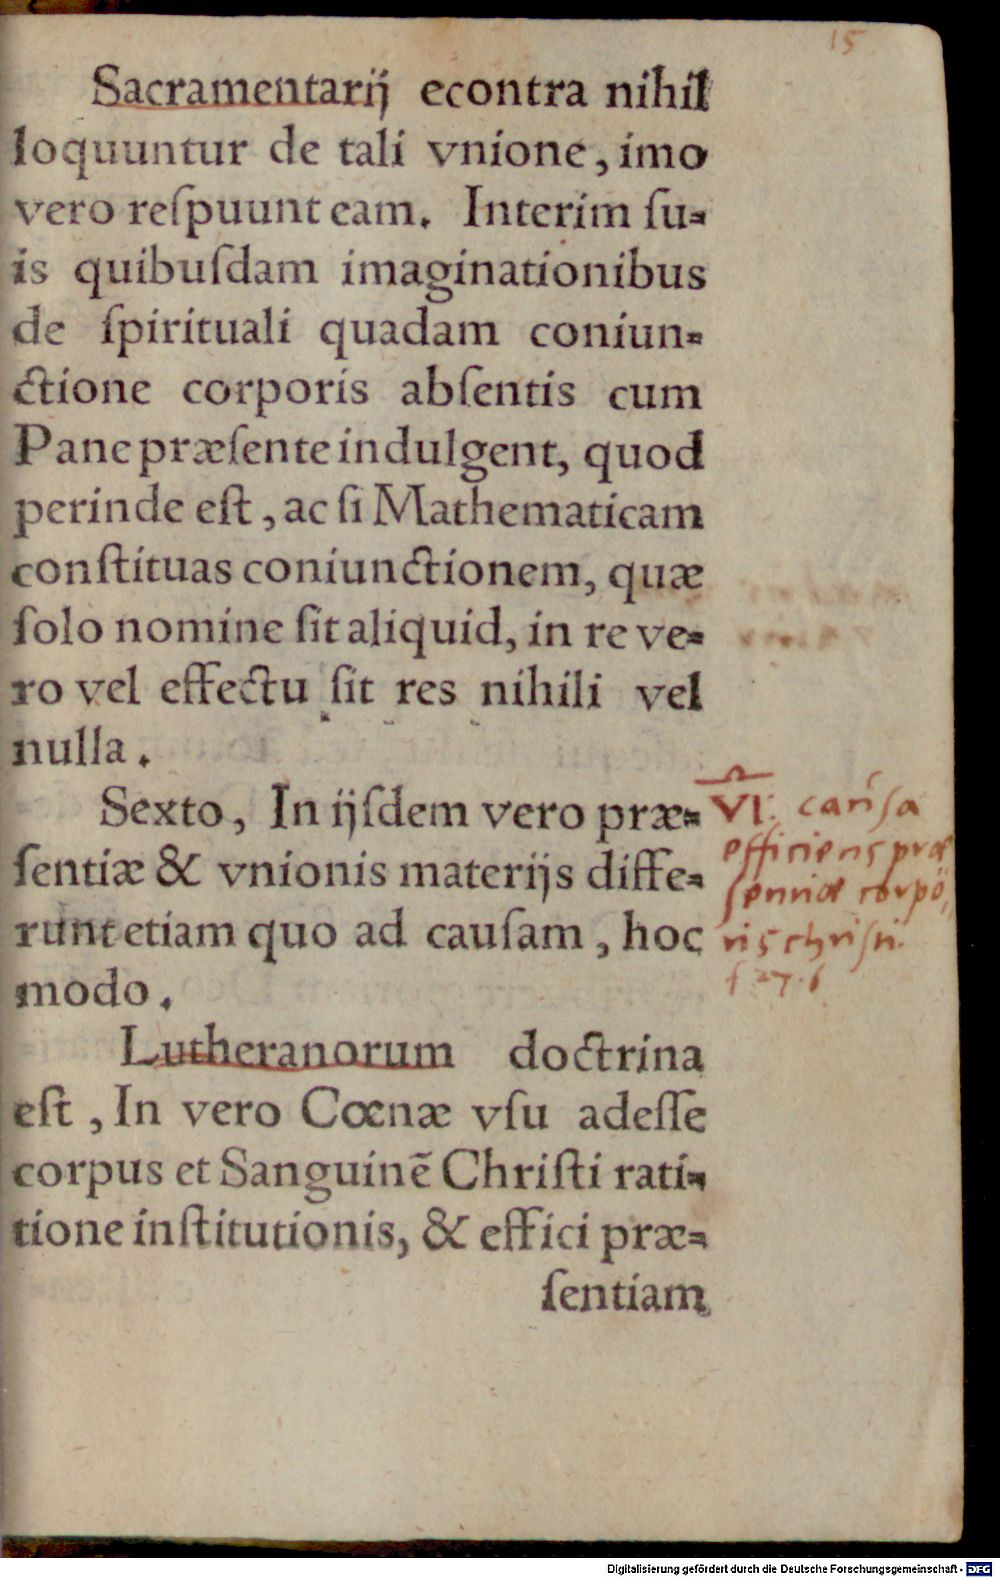 15
Sacramentarĳ econtra nihil
loquuntur de tali vnione, imo
vero reſpuunt eam. Interim ſu-
is quibuſdam imaginationibus
de ſpirituali quadam coniun-
ctione corporis abſentis cum
Pane præſente indulgent, quod
perinde eſt, ac ſi Mathematicam
conſtituas coniunctionem, quæ
ſolo nomine ſit aliquid, in re ve-
ro vel effectu ſit res nihili vel
nulla.
Sexto, In ĳſdem vero præ-
ſentiæ & vnionis materĳs diffe-
runt etiam quo ad cauſam, hoc
modo.
VI. cauſa
efficiens præ
ſentiæ corpo
ris chriſti.
f 27. b
Lutheranorum doctrina
eſt, In vero Cœnæ vſu adeſſe
corpus et Sanguinē Chriſti rati-
tione inſtitutionis, & effici præ-
ſentiam
Digitalisierung gefördert durch die Deutsche Forschungsgemeinschaft - DFG